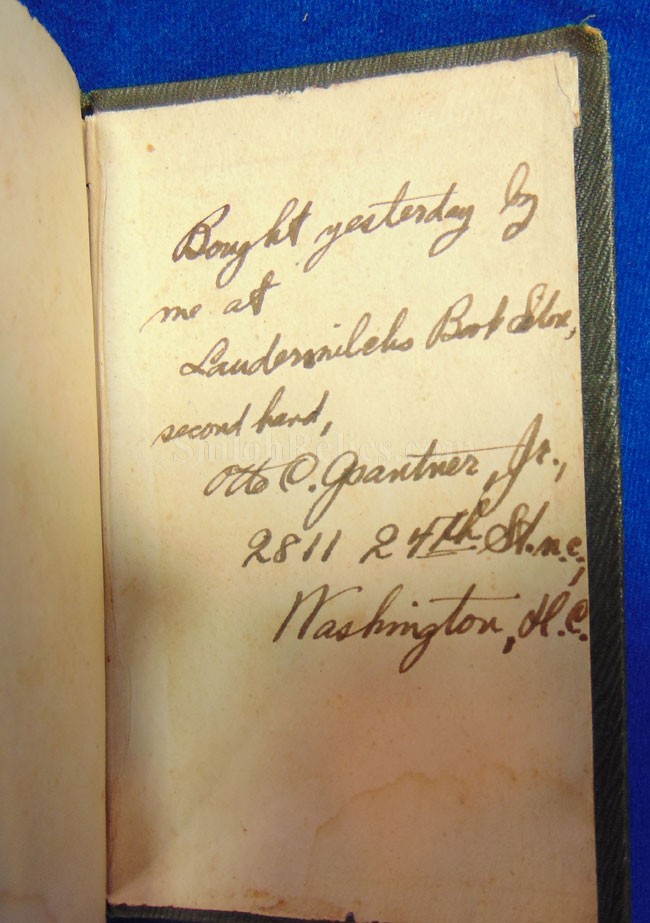 Bought yesterday by
me at
Laudermilchs Book Store,
second hand,
ShilohRelics.com
Otto Jr.,
2811 24th St. n.e.,
Washington, D.C.